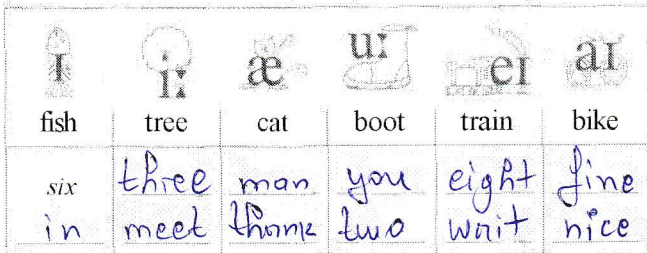 ɪ iː æ uː eɪ aɪ
fish tree cat boot train bike
six three man you eight fine
in meet thank two wait nice